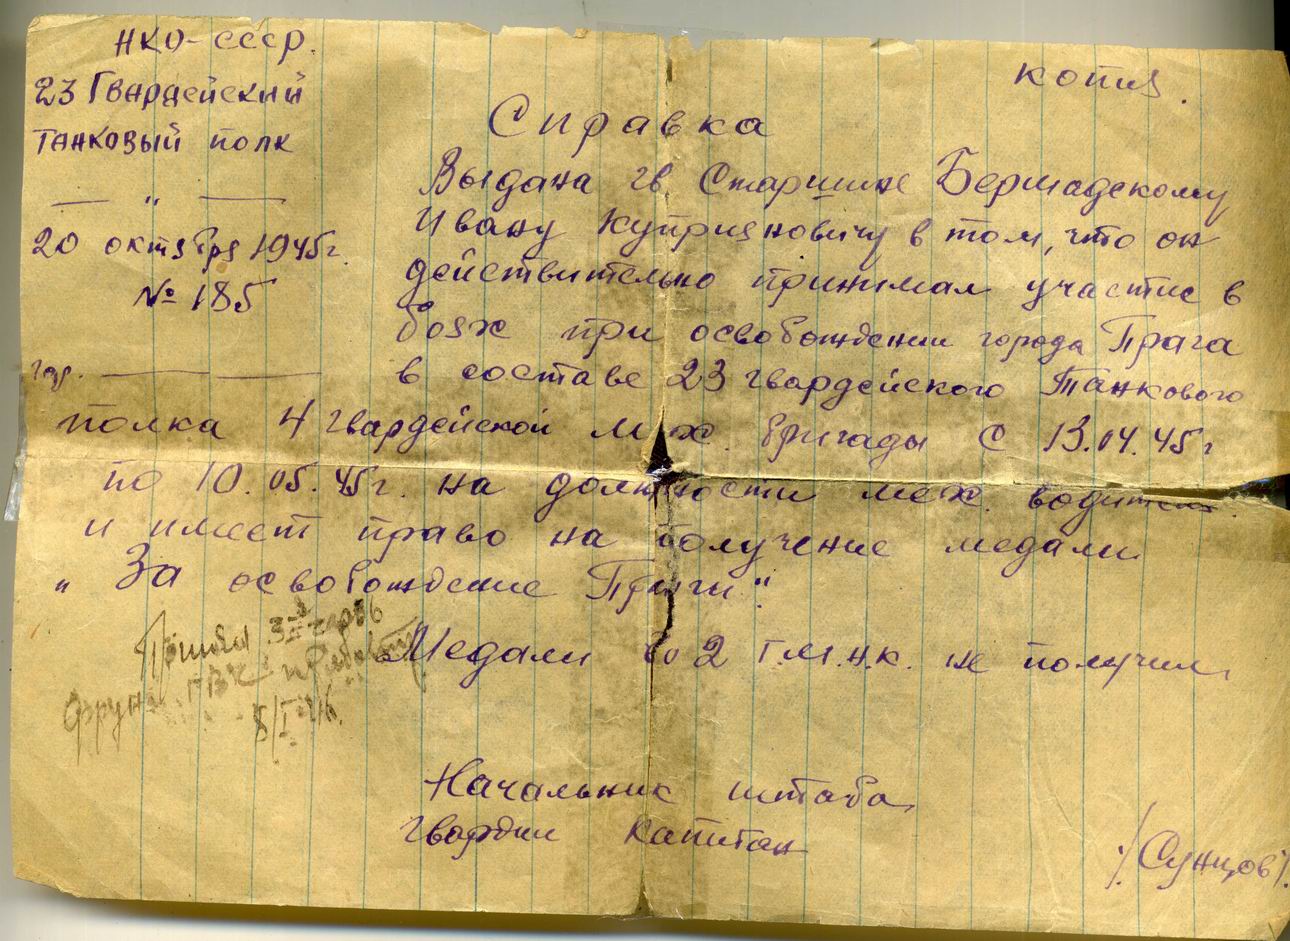 НКО-СССР.
23 Гвардейский
танковый полк
— " —
20 октября 1945г.
№ 185
гор. — —
копия.
Справка
Выдана гв. Старшине Бермадскому
Ивану Куприяновичу в том, что он
действительно принимал участие в
боях при освобождении города Прага
в составе 23 гвардейского Танкового
полка 4 гвардейской мех. бригады с 13.04.45г
по 10.05.45г. на должности мех. водителя.
и имеет право на получение медали
„За освобождение Праги".
Медали во 2 г.м.н.к. не получил
8/I-46.
Начальник штаба
гвардии капитан
/Сунцов/.